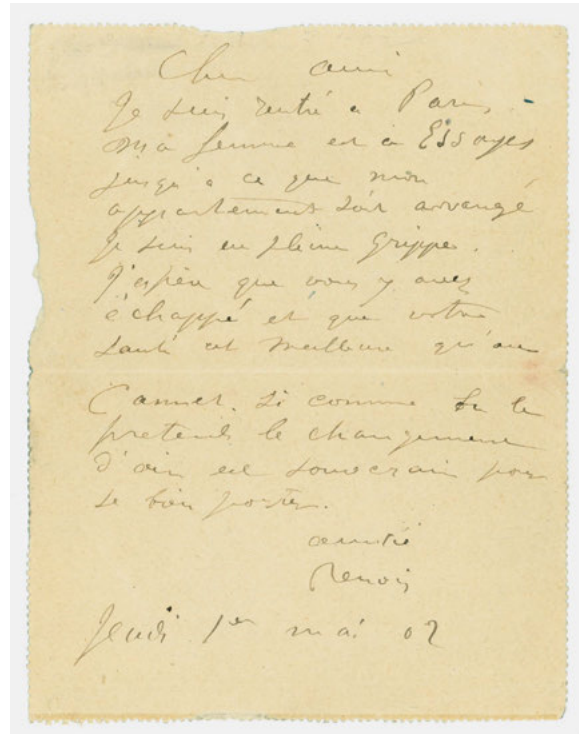 Cher ami
Je suis rentré a Paris.
ma femme est a Essoyes
jusqu'a ce que mon
appartement soit arrangé
Je suis en pleine Grippe.
J'espère que vous y avez
échappé et que votre
santé est meilleure qu'au
Cannet. Si comme on le
pretend le changement
d'air est souverain pour
se bien porter.
amitié
Renoir
Jeudi 1er mai 02